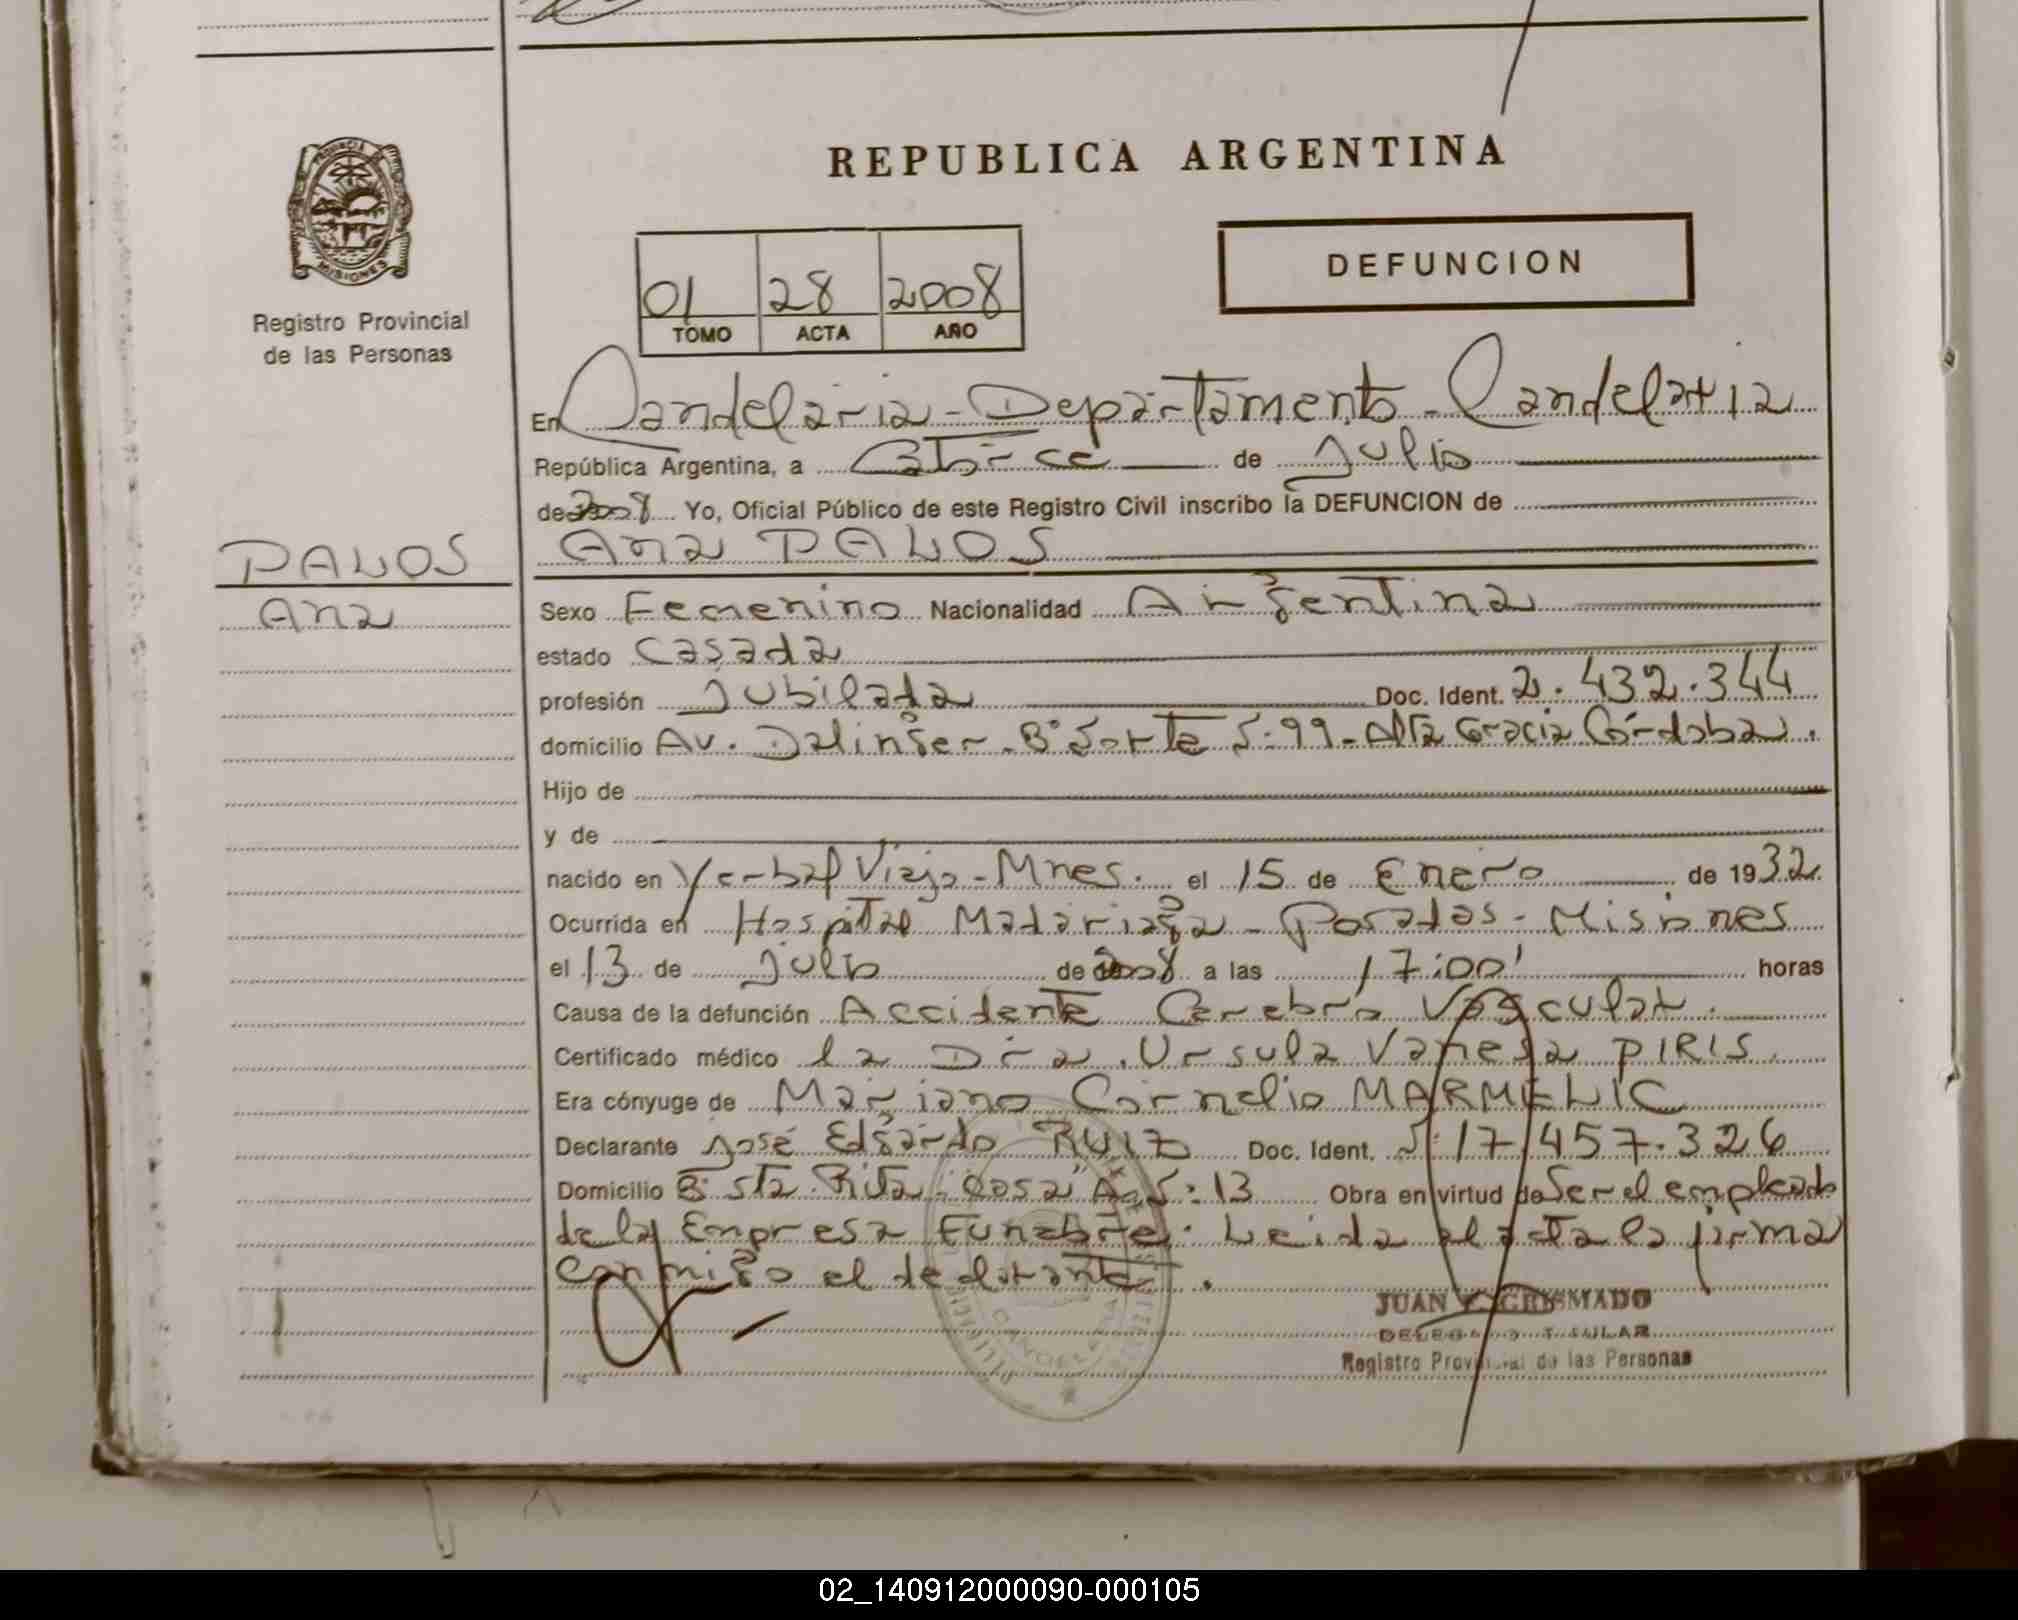 REPUBLICA ARGENTINA
PROVINCIA DE
MISIONES
Registro Provincial
de las Personas
01 28 2008
TOMO ACTA AÑO
DEFUNCION
En Candelaria - Departamento - Candelaria
República Argentina, a Catorce de Julio
de 2008 Yo, Oficial Público de este Registro Civil inscribo la DEFUNCION de
PALOS
Ana PALOS
Ana
Sexo Femenino Nacionalidad Argentina
estado Casada
profesión Jubilada Doc. Ident. 2.432.344
domicilio Av. Dalinger - B° Norte S:99 - Alta Gracia Córdoba.
Hijo de
y de
nacido en Yerbal Viejo - Mnes. el 15 de Enero de 1932
Ocurrida en Hospital Madariaga - Posadas - Misiones
el 13 de Julio de 2008 a las 17:00' horas
Causa de la defunción Accidente Cerebro Vascular.
Certificado médico la Dra. Ursula Vanesa PIRIS.
Era cónyuge de Mariano Cornelio MARMELIC
Declarante José Edgardo RUIZ Doc. Ident. 17.457.326
Domicilio B° Sta. Rita - Casa 13 Obra en virtud de Ser el empleado
de la Empresa Funebre. Leida el acta la firma
conmigo el declarante.
CANDELARIA
JUAN GRISMADO
DELEGADO TITULAR
Registro Provincial de las Personas
02_140912000090-000105